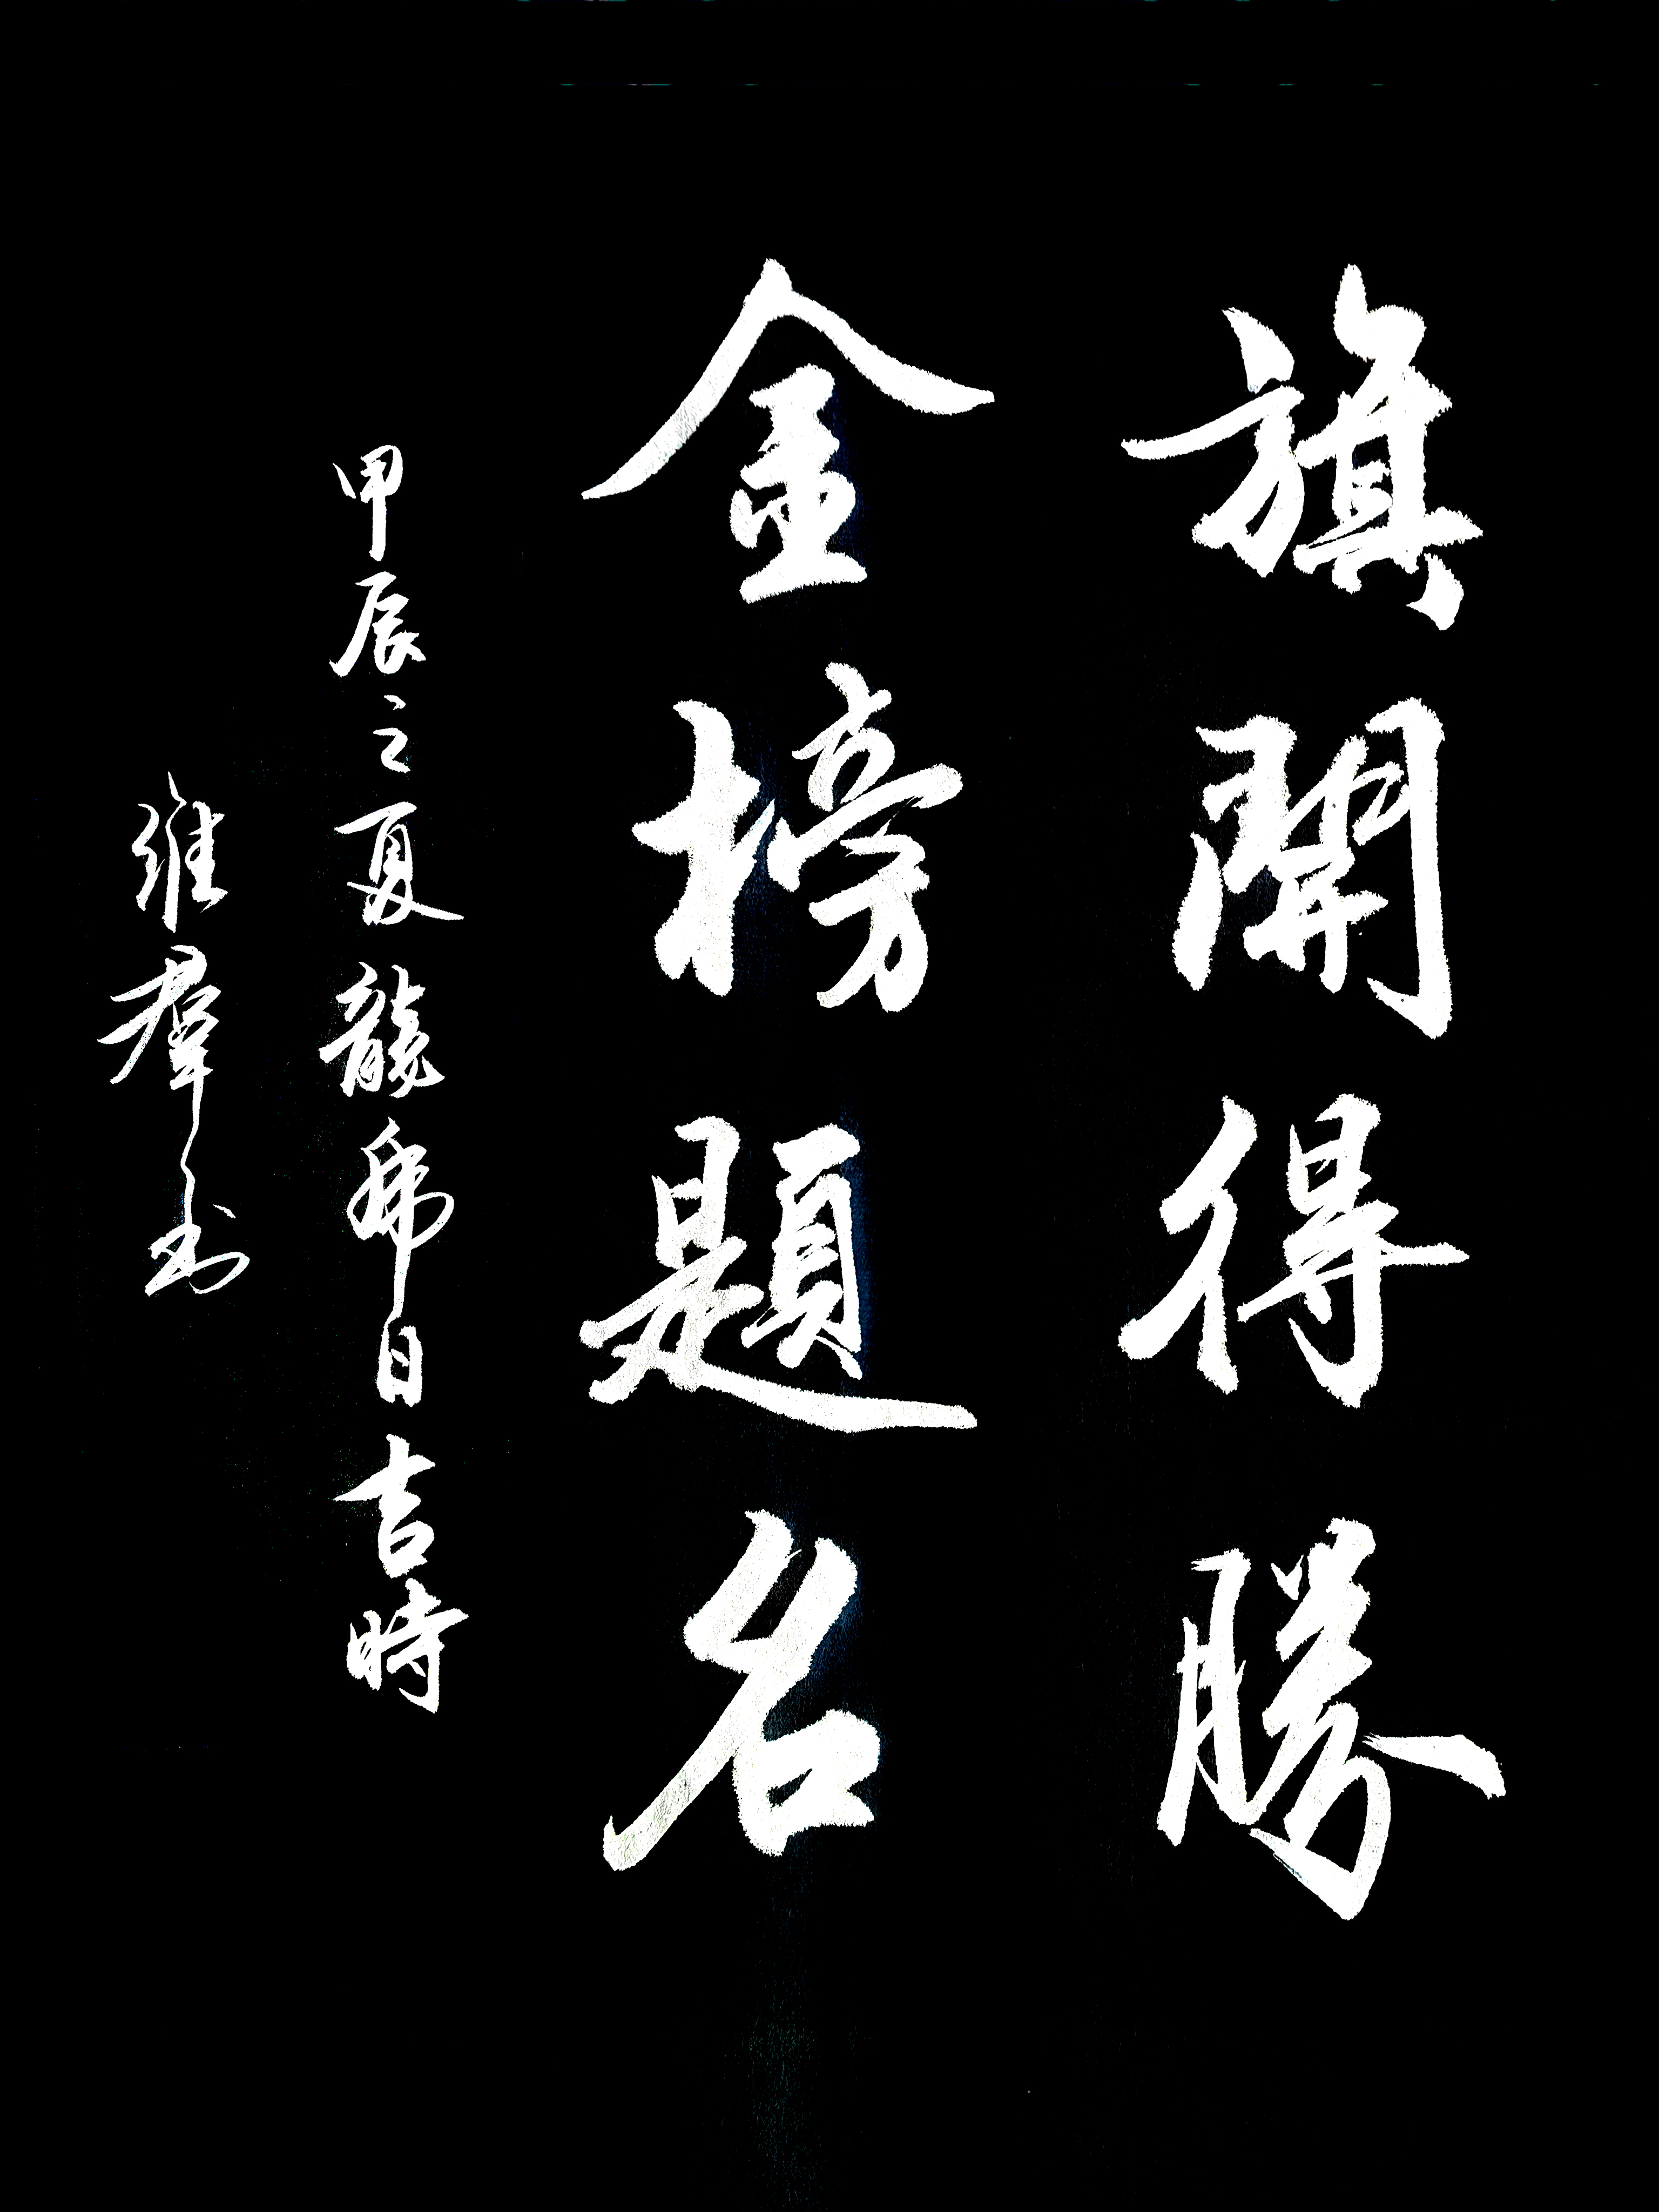 旗開得勝
金榜題名
甲辰之夏龍虎日吉時
維羣書